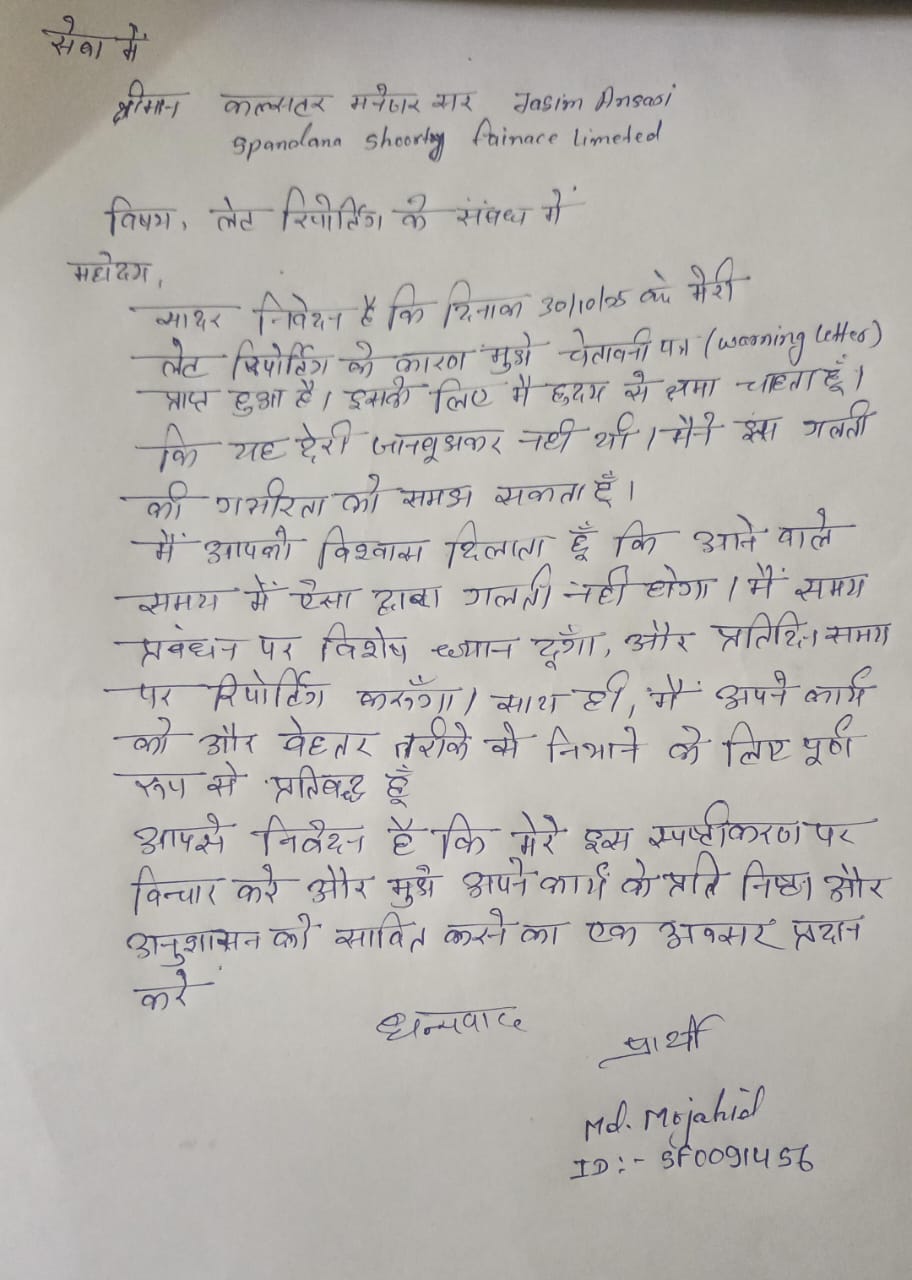 सेवा में
श्रीमान कलस्टर मनेजर सर Jasim Ansari
Spandana Shoorty fainace Limeted
विषय, लेट रिपोर्टिंग के संबंध में
महोदय,
सादर निवेदन है कि दिनाक 30/10/25 को मेरी
लेट रिपोर्टिंग के कारण मुझे चेतावनी पत्र (warning letter)
प्राप्त हुआ है। इसके लिए मै हृदय से क्षमा चाहता हूँ।
कि यह देरी जानबूझकर नही थी। मैने इस गलती
की गंभीरता को समझ सकता हूँ।
मैं आपको विश्वास दिलाता हूँ कि आने वाले
समय में ऐसा द्वाबा गलती नही होगा। मैं समय
प्रबंधन पर विशेष ध्यान दूँगा, और प्रतिदिन समय
पर रिपोर्टिंग करुँगा। साथ ही, मैं अपने कार्य
को और वेहतर तरीके से निभाने के लिए पूर्ण
रूप से प्रतिबद्ध हूँ
आपसे निवेदन है कि मेरे इस स्पष्टीकरण पर
विचार करे और मुझे अपने कार्य के प्रति निष्ठा और
अनुशासन को सावित करने का एक अवसर प्रदान
करे
धन्यवाद
प्रार्थी
Md. Mojahid
ID:- SF0091456